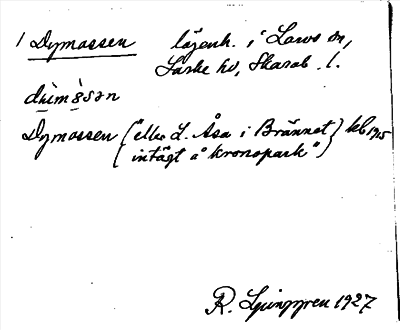 1 Dymossen lägenh. i Larvs sn,
Laske hd, Skarab. l.
Dymossen ("eller L. Åsa i Brännet) kb 1915
(intägt å kronopark")
R. Ljunggren 1927